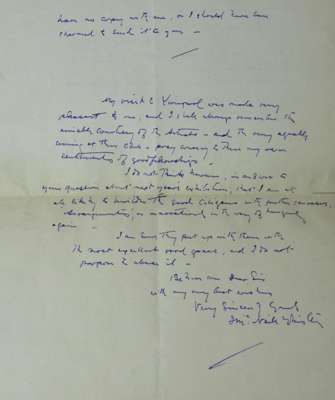 have no copy with me, or I should have been
charmed to send it to you —
My visit to Liverpool was made very
pleasant to me, and I shall always remember the
amiable courtesy of the Artists — and the very equally
coming at their Club — pray convey to them my own
sentiments of good fellowship —
I do not think however, in answer to
your question about next year's exhibition, that I am at
all likely to the good Liverpool with further
or in any way of
again —
I am sure they put up with them with
the most excellent good grace, and I do not
propose to abuse it —
Believe me Dear Sir
with my very best wishes
Very Sincerely Yours
J. McNeill Whistler